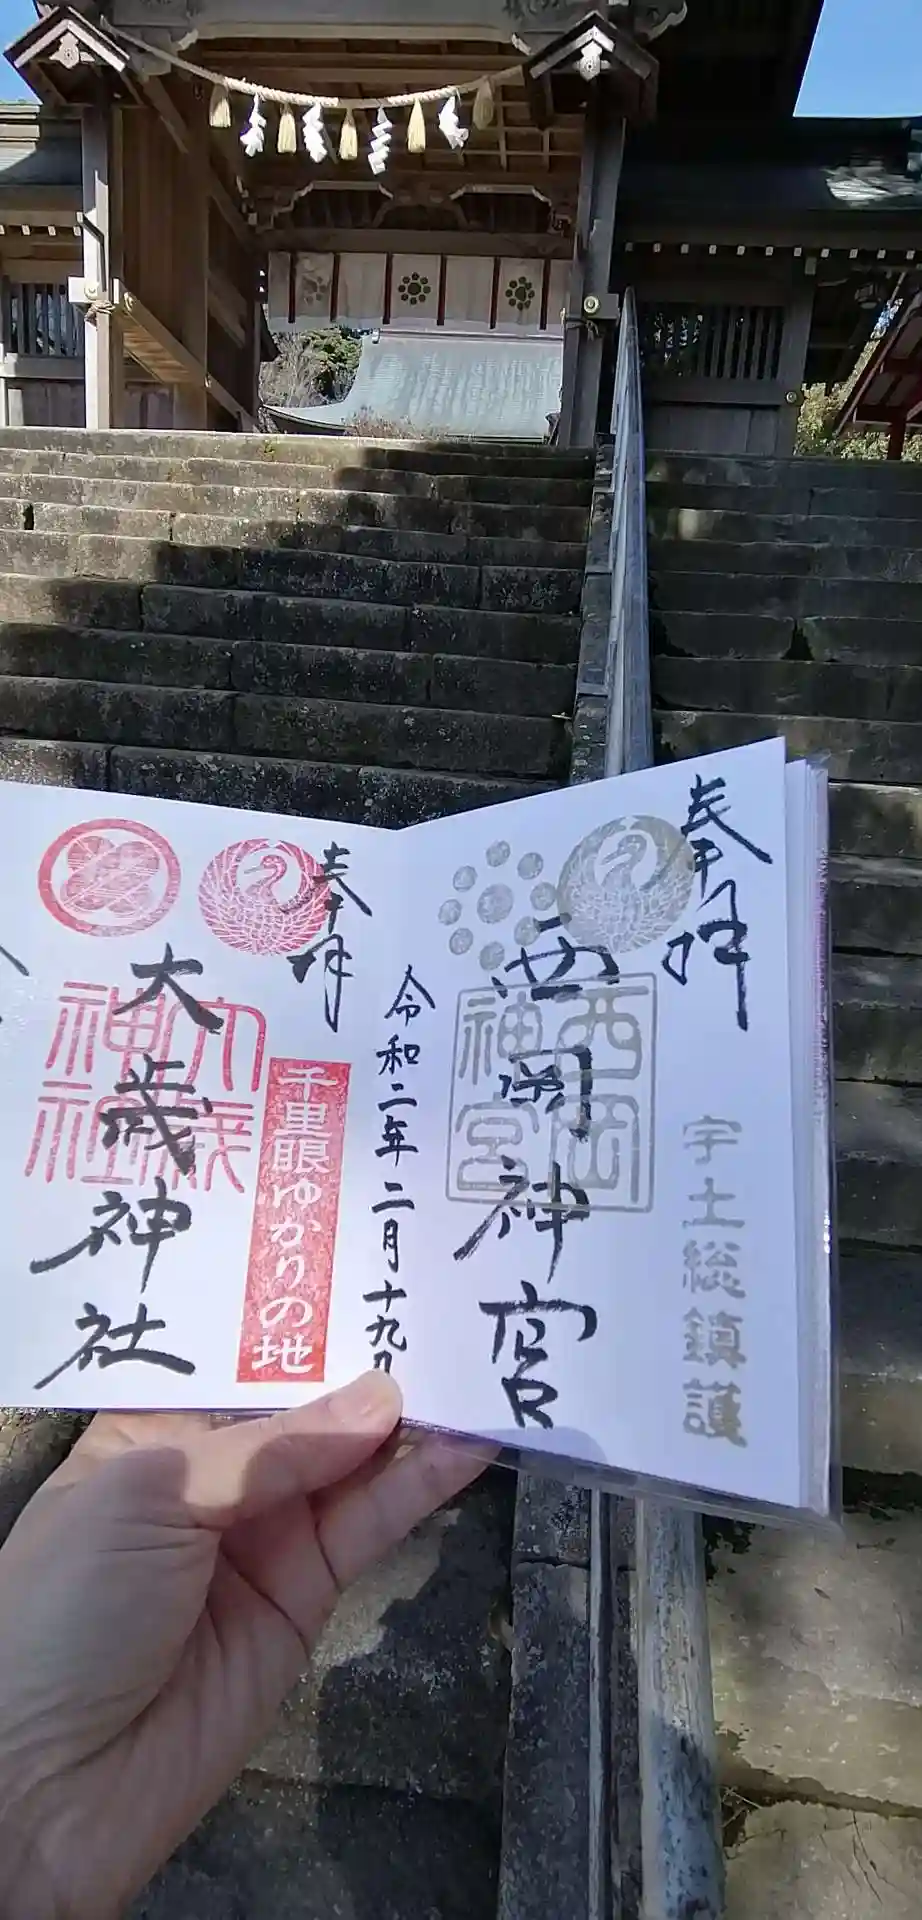 奉拝
宇土総鎮護
西岡神宮
西岡神宮
令和二年二月十九日
奉拝
千里眼ゆかりの地
大歳神社
大歳神社